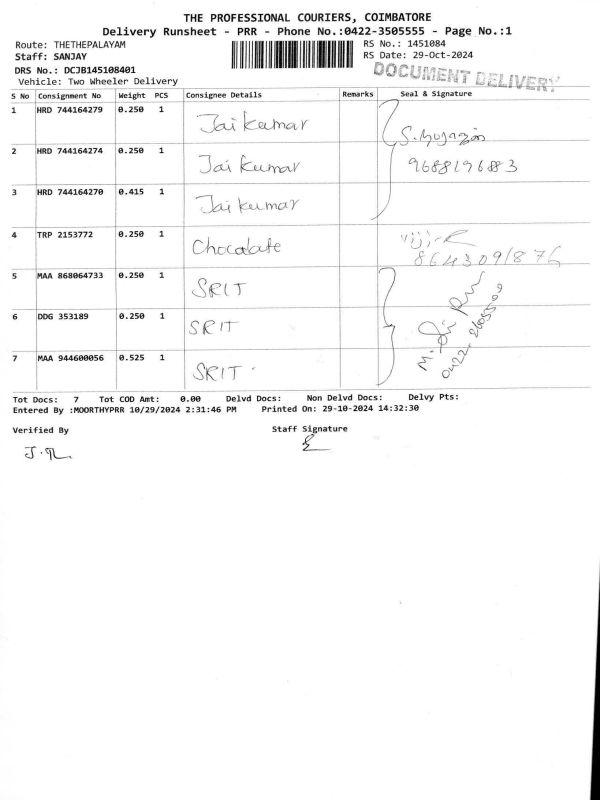 THE PROFESSIONAL COURIERS, COIMBATORE
Delivery Runsheet - PRR - Phone No.:0422-3505555 - Page No.:1
Route: THETHEPALAYAM RS No.: 1451084
Staff: SANJAY RS Date: 29-Oct-2024
DRS No.: DCJB145108401 DOCUMENT DELIVERY
Vehicle: Two Wheeler Delivery
S No Consignment No Weight PCS Consignee Details Remarks Seal & Signature
1 HRD 744164279 0.250 1 Jai Kumar
2 HRD 744164274 0.250 1 Jai Kumar 9688196883
3 HRD 744164270 0.415 1 Jai Kumar
4 TRP 2153772 0.250 1 Chocolate 8643091876
5 MAA 868064733 0.250 1 SRIT
6 DDG 353189 0.250 1 SRIT
7 MAA 944600056 0.525 1 SRIT
Tot Docs: 7 Tot COD Amt: 0.00 Delvd Docs: Non Delvd Docs: Delvy Pts:
Entered By :MOORTHYPRR 10/29/2024 2:31:46 PM Printed On: 29-10-2024 14:32:30
Verified By Staff Signature